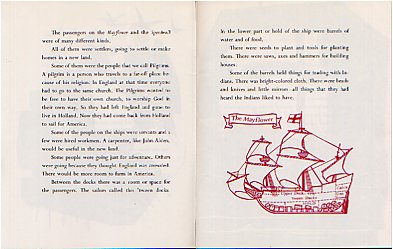 The passengers on the Mayflower and the Speedwell
were of many different kinds.
All of them were settlers, going to settle or make
homes in a new land.
Some of them were the people that we call Pilgrims.
A pilgrim is a person who travels to a far-off place be-
cause of his religion. In England at that time everyone
had to go to the same church. The Pilgrims wanted to
be free to have their own church, to worship God in
their own way. So they had left England and gone to
live in Holland. Now they had come back from Holland
to sail for America.
Some of the people on the ships were servants and a
few were hired workmen. A carpenter, like John Alden,
would be useful in the new land.
Some people were going just for adventure. Others
were going because they thought England was crowded.
There would be more room to farm in America.
Between the decks there was a room or space for
the passengers. The sailors called this 'tween decks.
in the lower part or hold of the ship were barrels of
water and of food.
There were seeds to plant and tools for planting
them. There were saws, axes and hammers for building
houses.
Some of the barrels held things for trading with In-
dians. There was bright-colored cloth. There were beads
and knives and little mirrors—all things that they had
heard the Indians liked to have.
The Mayflower
Upper Deck
Tween Decks